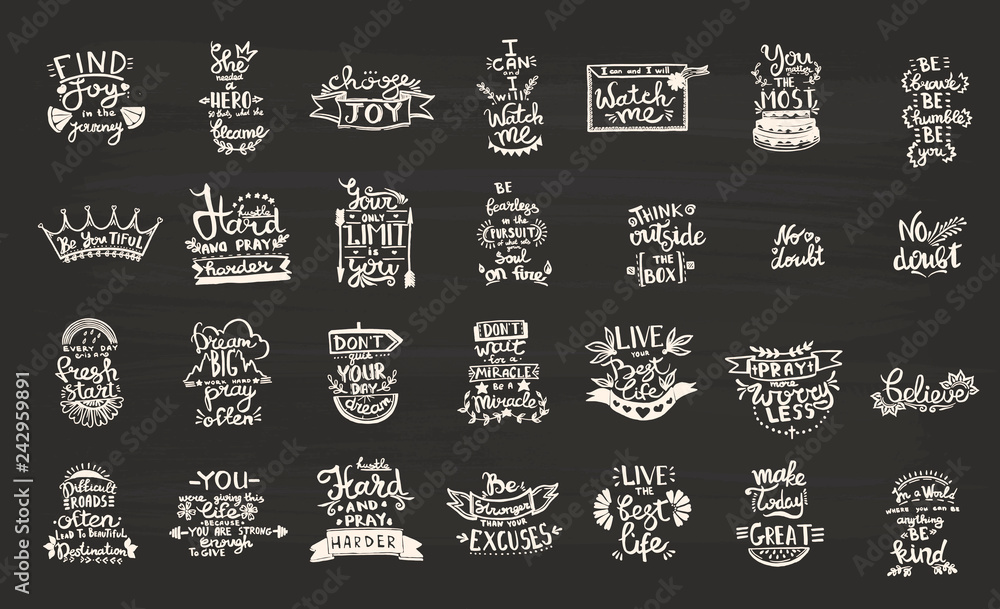 FIND
Joy
in the
journey
She
needed
a
HERO
so thats what she
became
choose
JOY
I
CAN
and
I
will
Watch
ME
I can and I will
Watch
me
You
matter
THE
MOST
BE
brave
BE
humble
BE
you
Be YOU TIFUL
hustle
Hard
AND PRAY
harder
Your
ONLY
LIMIT
is
YOU
BE
fearless
in the
PURSUIT
of what sets
your
Soul
on fire
THINK
outside
THE
BOX
No
doubt
NO
doubt
EVERY DAY
IS A
fresh
start
Dream
BIG
WORK HARD
pray
often
DON'T
quit
YOUR
DAY
dream
DON'T
wait
for a
MIRACLE
BE A
Miracle
LIVE
YOUR
Best
life
PRAY
more
worry
LESS
believe
Difficult
ROADS
often
LEAD TO BEAUTIFUL
Destination
YOU
were giving this
life
BECAUSE
YOU ARE STRONG
enough
TO GIVE
hustle
Hard
AND
PRAY
HARDER
Be
Stronger
THAN YOUR
EXCUSES
LIVE
THE
best
life
make
Today
GREAT
In a World
WHERE YOU CAN BE
anything
BE
kind
Adobe Stock | #242959891